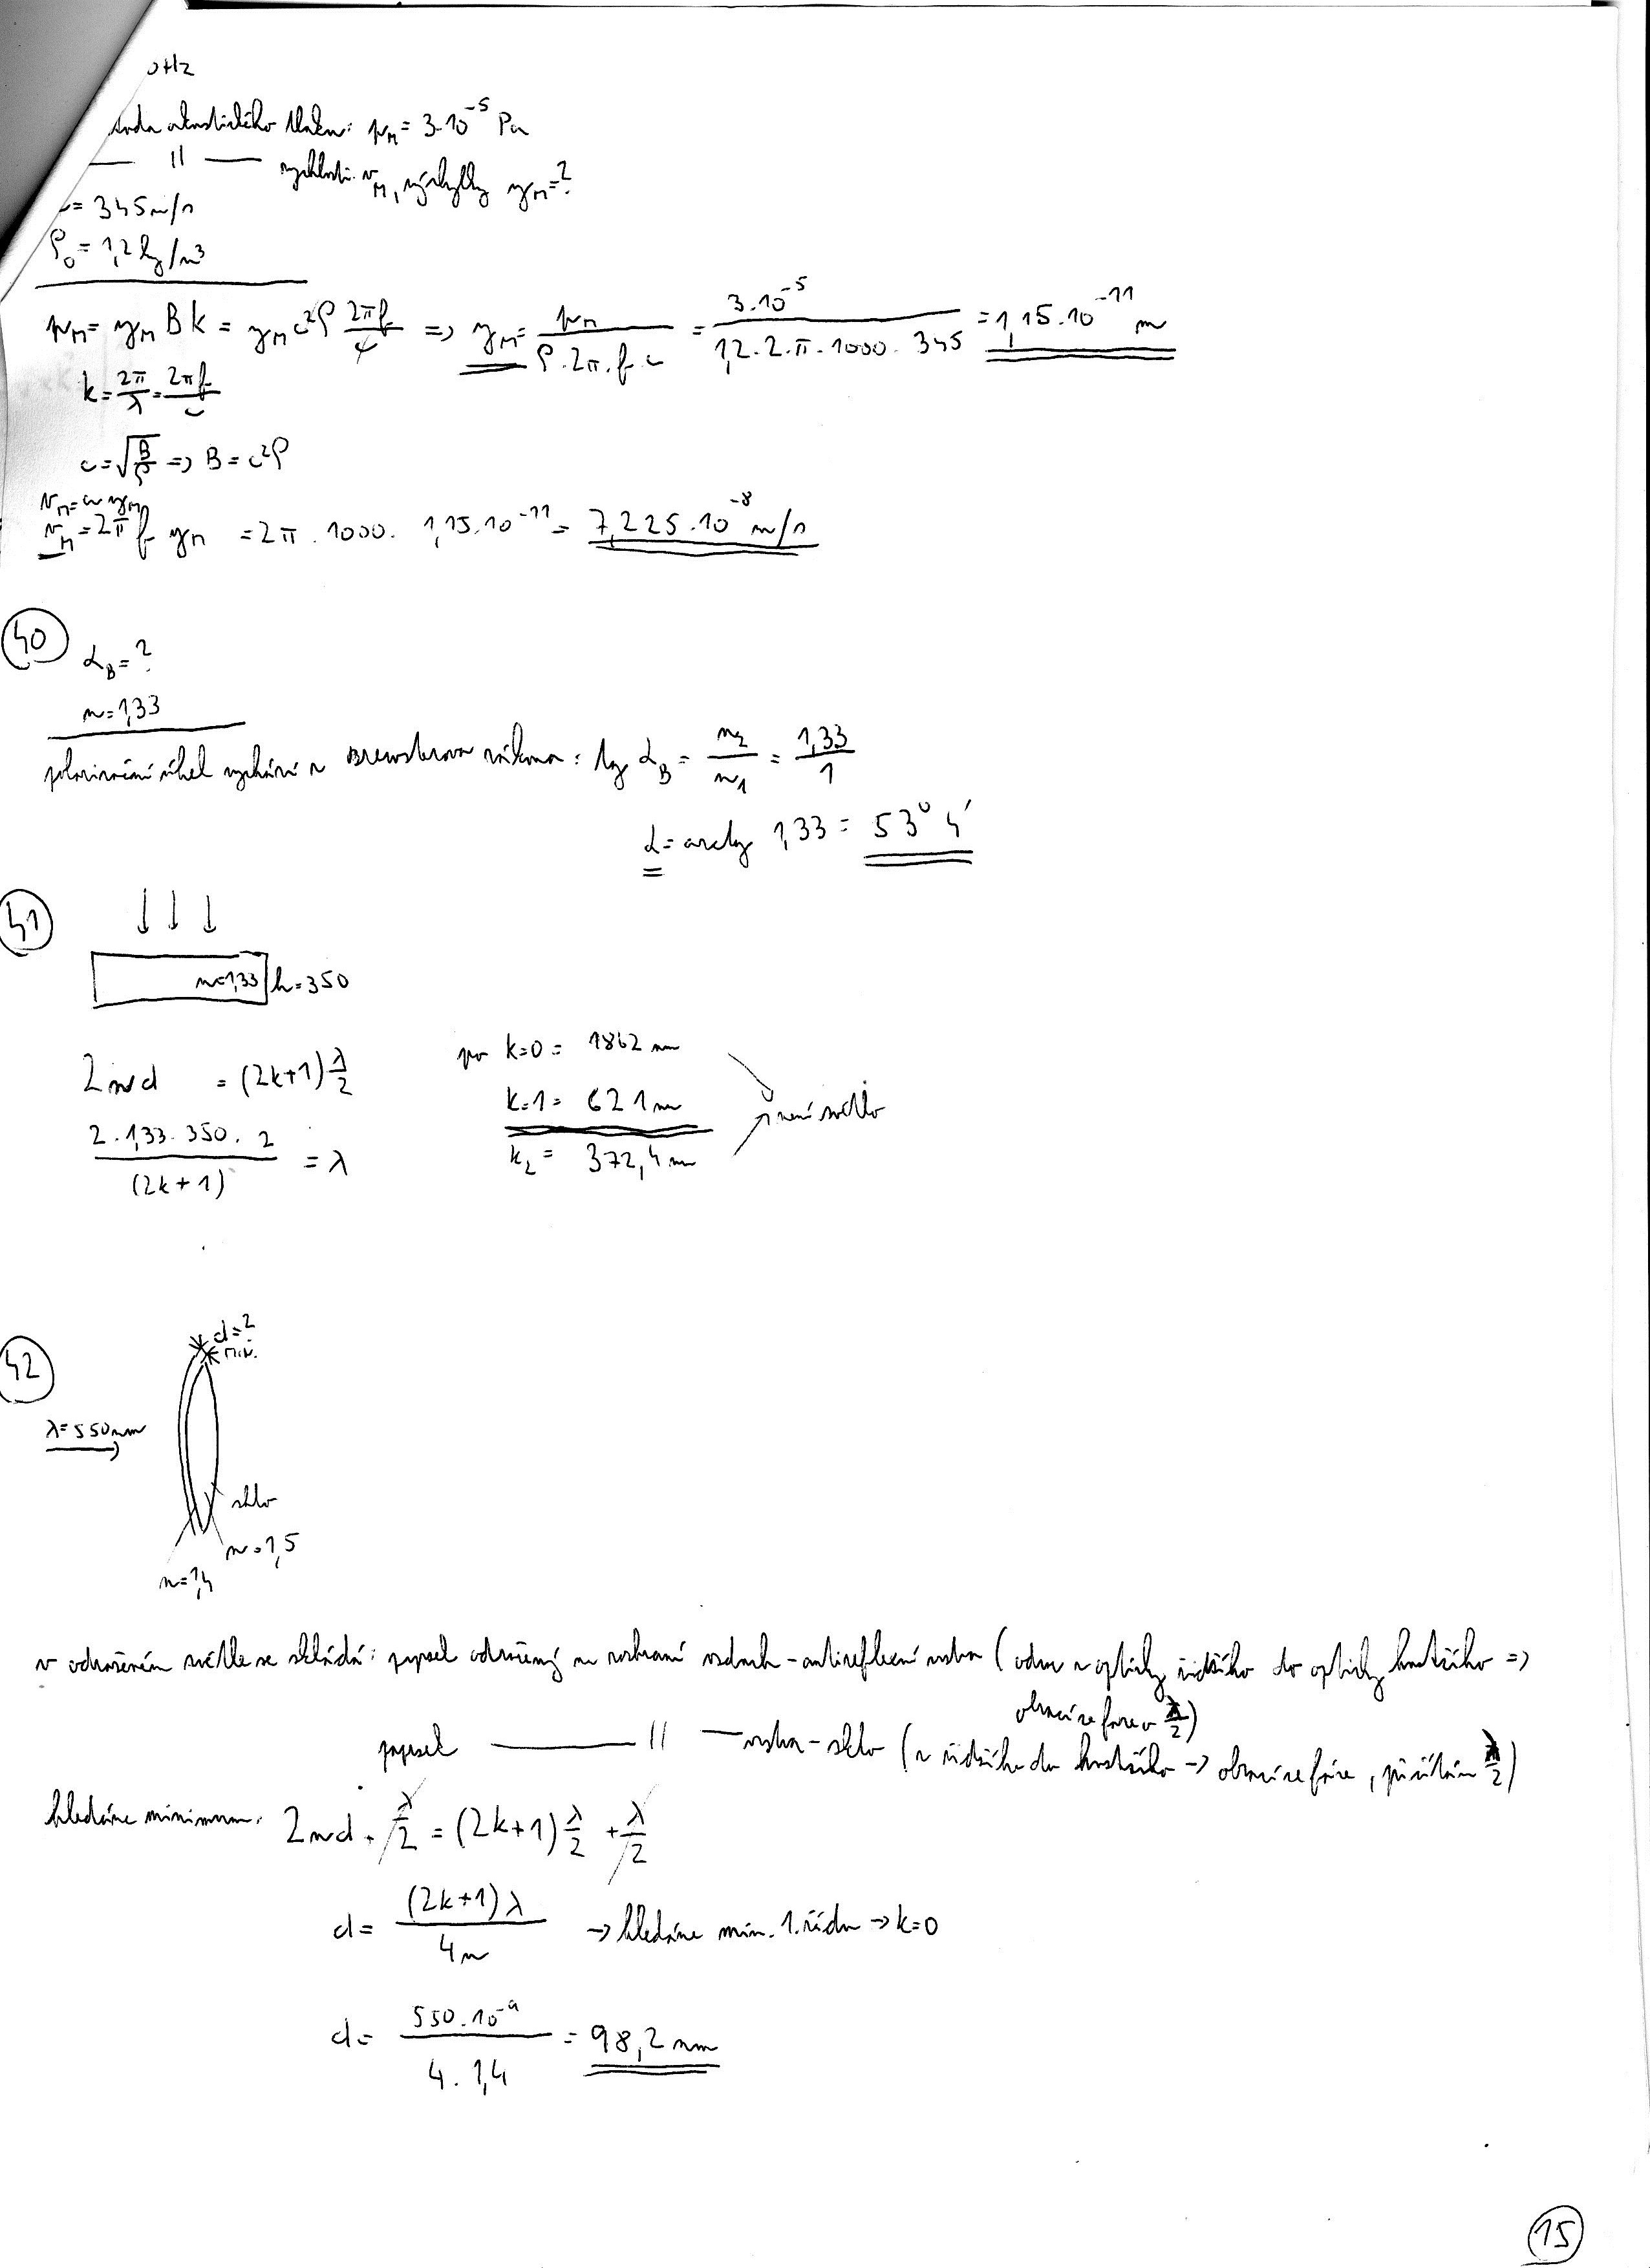 0Hz
akustického tlaku: pₘ = 3·10⁻⁵ Pa
— 〃 — rychlosti vₘ, výchylky yₘ = ?
c = 345 m/s
ρ₀ = 1,2 kg/m³
pₘ = yₘ B k = yₘ c²ρ 2πf/c => yₘ = pₘ/(ρ·2π·f·c) = 3·10⁻⁵/(1,2·2·π·1000·345) = 1,15·10⁻¹¹ m
k = 2π/λ = 2πf/c
c = √(B/ρ) => B = c²ρ
vₘ = ω yₘ
vₘ = 2π f yₘ = 2π · 1000 · 1,15·10⁻¹¹ = 7,225·10⁻⁸ m/s
40
α_B = ?
n = 1,33
polarizační úhel vychází z Brewsterova zákona: tg α_B = n₂/n₁ = 1,33/1
α = arctg 1,33 = 53° 4'
41
n=1,33 h=350
2nd = (2k+1) λ/2
2·1,33·350·2/(2k+1) = λ
pro k=0 = 1862 nm
k=1 = 621 nm
k₂ = 372,4 nm
není světlo
42
d=?
min.
λ=550nm
sklo
n=1,5
n=1,4
v odraženém světle se skládá: paprsek odražený na rozhraní vzduch - antireflexní vrstva (odraz z opticky řidšího do opticky hustšího =>
obrací se fáze o λ/2)
paprsek — 〃 — vrstva - sklo (z řidšího do hustšího → obrací se fáze, přičítám λ/2)
hledáme minimum: 2nd + λ/2 = (2k+1) λ/2 + λ/2
d = (2k+1)λ/4n → hledáme min. 1. řádu → k=0
d = 550·10⁻⁹/(4·1,4) = 98,2 nm
15